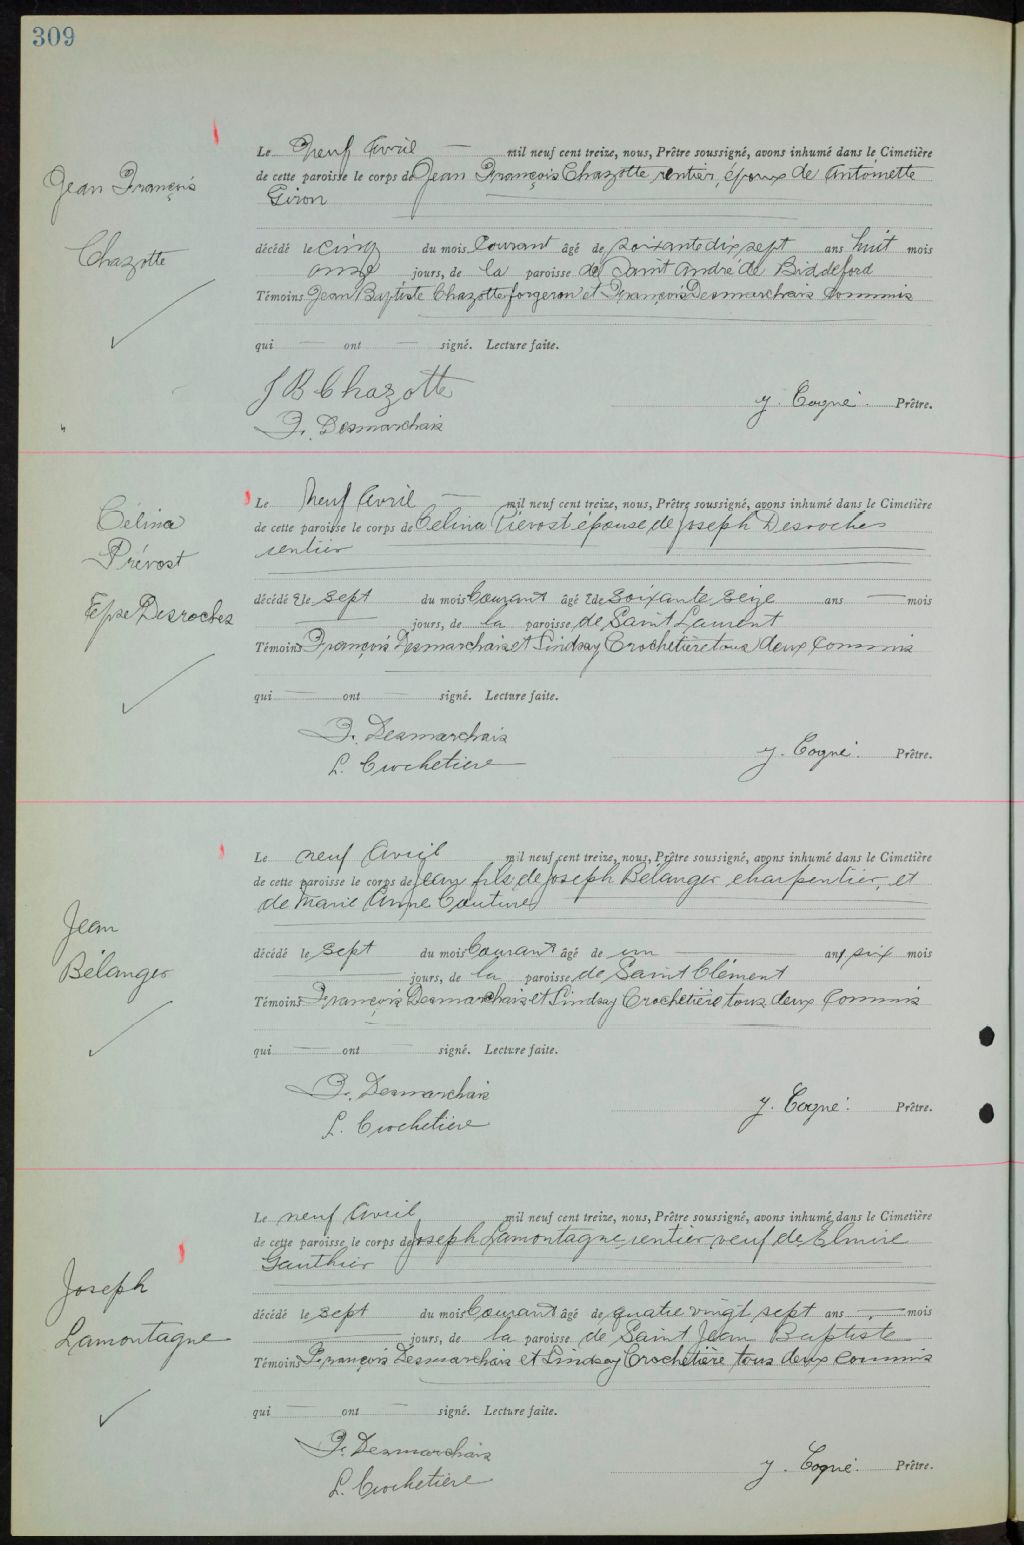 309
Jean François
Chazotte
Le Neuf Avril — mil neuf cent treize, nous, Prêtre soussigné, avons inhumé dans le Cimetière
de cette paroisse le corps de Jean François Chazotte rentier, époux de Antoinette
Giron
décédé le cinq du mois Courant âgé de soixante dix sept ans huit mois
onze jours, de la paroisse de Saint André de Biddeford
Témoins Jean Baptiste Chazotte forgeron et François Desmarchais Commis
qui — ont — signé. Lecture faite.
J B Chazotte
F. Desmarchais
Y. Cogné. Prêtre.
Célina
Prévost
Epse Desroches
Le Neuf Avril — mil neuf cent treize, nous, Prêtre soussigné, avons inhumé dans le Cimetière
de cette paroisse le corps de Célina Prévost épouse de Joseph Desroches
rentier
décédé e le sept du mois Courant âgé e de soixante seize ans — mois
— jours, de la paroisse de Saint Laurent
Témoins François Desmarchais et Lindsay Crochetière tous deux Commis
qui — ont — signé. Lecture faite.
F. Desmarchais
L. Crochetiere
Y. Cogné. Prêtre.
Jean
Bélanger
Le neuf Avril mil neuf cent treize, nous, Prêtre soussigné, avons inhumé dans le Cimetière
de cette paroisse le corps de Jean fils de Joseph Bélanger charpentier, et
de Marie Anne Couture
décédé le sept du mois Courant âgé de un — an six mois
— jours, de la paroisse de Saint Clément
Témoins François Desmarchais et Lindsay Crochetière tous deux Commis
qui — ont — signé. Lecture faite.
F. Desmarchais
L. Crochetiere
Y. Cogné. Prêtre.
Joseph
Lamontagne
Le neuf Avril mil neuf cent treize, nous, Prêtre soussigné, avons inhumé dans le Cimetière
de cette paroisse le corps de Joseph Lamontagne rentier veuf de Elmire
Gauthier
décédé le sept du mois Courant âgé de quatre vingt sept ans — mois
— jours, de la paroisse de Saint Jean Baptiste
Témoins François Desmarchais et Lindsay Crochetière tous deux Commis
qui — ont — signé. Lecture faite.
F. Desmarchais
L. Crochetière
Y. Cogné. Prêtre.